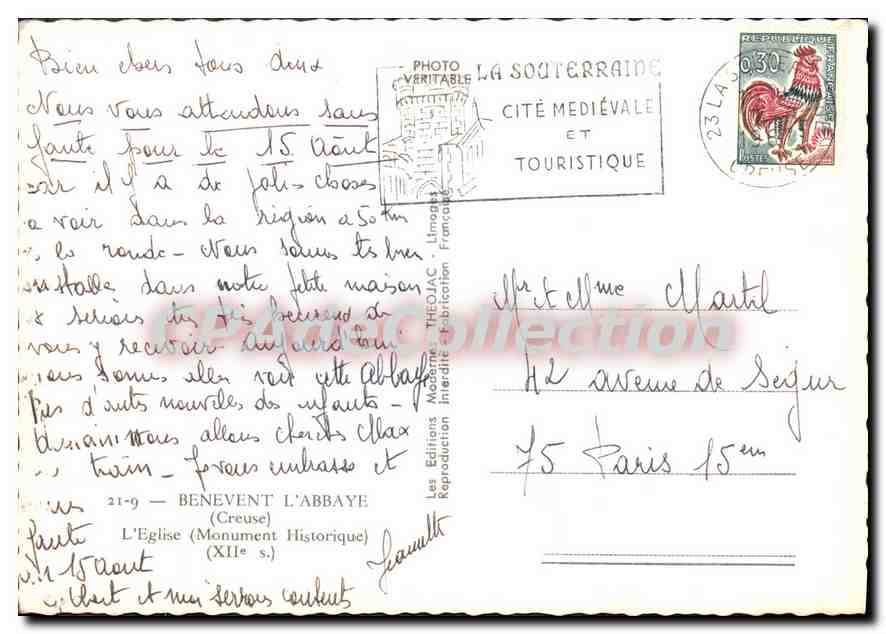 Bien chers tous deux
Nous vous attendons sans
faute pour le 15 Août
car il y a de jolies choses
a voir dans la région a 50 km
la ronde - Nous sommes très bien
installés dans notre petite maison
& serions très très heureux de
vous y recevoir aujourd'hui
nous sommes allés voir cette Abbaye
Pas d'autres nouvelles des enfants -
Demain nous allons chercher Max
train - Je vous embrasse et
15 Aout
et moi serions contents
Jeannette
21-9 — BENEVENT L'ABBAYE
(Creuse)
L'Eglise (Monument Historique)
(XIIe s.)
PHOTO
VERITABLE
Les Editions Modernes THEOJAC - Limoges
Reproduction Interdite - Fabrication Française
LA SOUTERRAINE
CITÉ MEDIÉVALE
ET
TOURISTIQUE
23 LA S
CREUSE
REPUBLIQUE
FRANÇAISE
0,30
POSTES
Mr et Mme Martel
42 avenue de Ségur
75 Paris 15em
CPAdeCollection